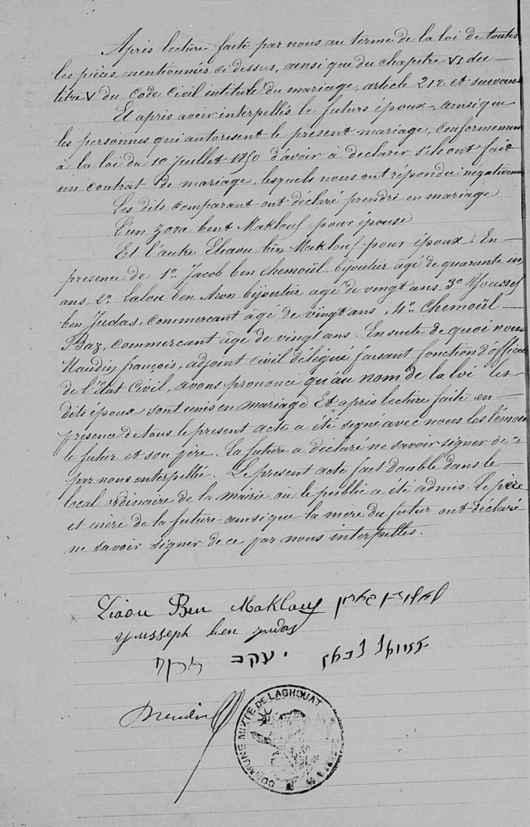 Après lecture faite par nous au terme de la loi de toutes
les pièces mentionnées ci dessus, ainsi que du chapitre VI du
titre V du Code Civil intitulé du mariage, article 212 et suivant
Et après avoir interpellés le futurs époux, ainsi que
les personnes qui autorisent le présent mariage, conformément
à la loi du 10 Juillet 1850 d'avoir à déclarer s'ils ont fait
un contrat de mariage, lesquels nous ont répondu négativement
Les dits comparant ont déclaré prendre en mariage
L'un Zora bent Maklouf pour épouse
Et l'autre Eliaou bin Maklouf pour époux. En
présence de 1º Jacob ben Chemoül bijoutier âgé de quarante un
ans, 2º Lalou ben Aron bijoutier âgé de vingt ans 3º Youssef
ben Judas, commerçant âgé de vingt ans 4º Chemoül
Baz, commerçant âgé de vingt ans. Ensuite de quoi nous
françois, adjoint civil délégué faisant fonction d'officier
de l'État Civil, avons prononcé qu'au nom de la loi les
dits époux sont unis en mariage Et après lecture faite en
présence de tous le présent acte a été signé avec nous les témoins
le futur et son père. La future a déclaré ne savoir signer de ce
par nous interpellée. Le présent acte fait double dans le
local ordinaire de la mairie où le public a été admis. Le père
et mère de la future ainsi que la mère du futur ont déclaré
ne savoir signer de ce par nous interpellés.
Liaou Ben Maklouf
Yousseph ben judas
יעקב
COMMUNE MIXTE DE LAGHOUAT